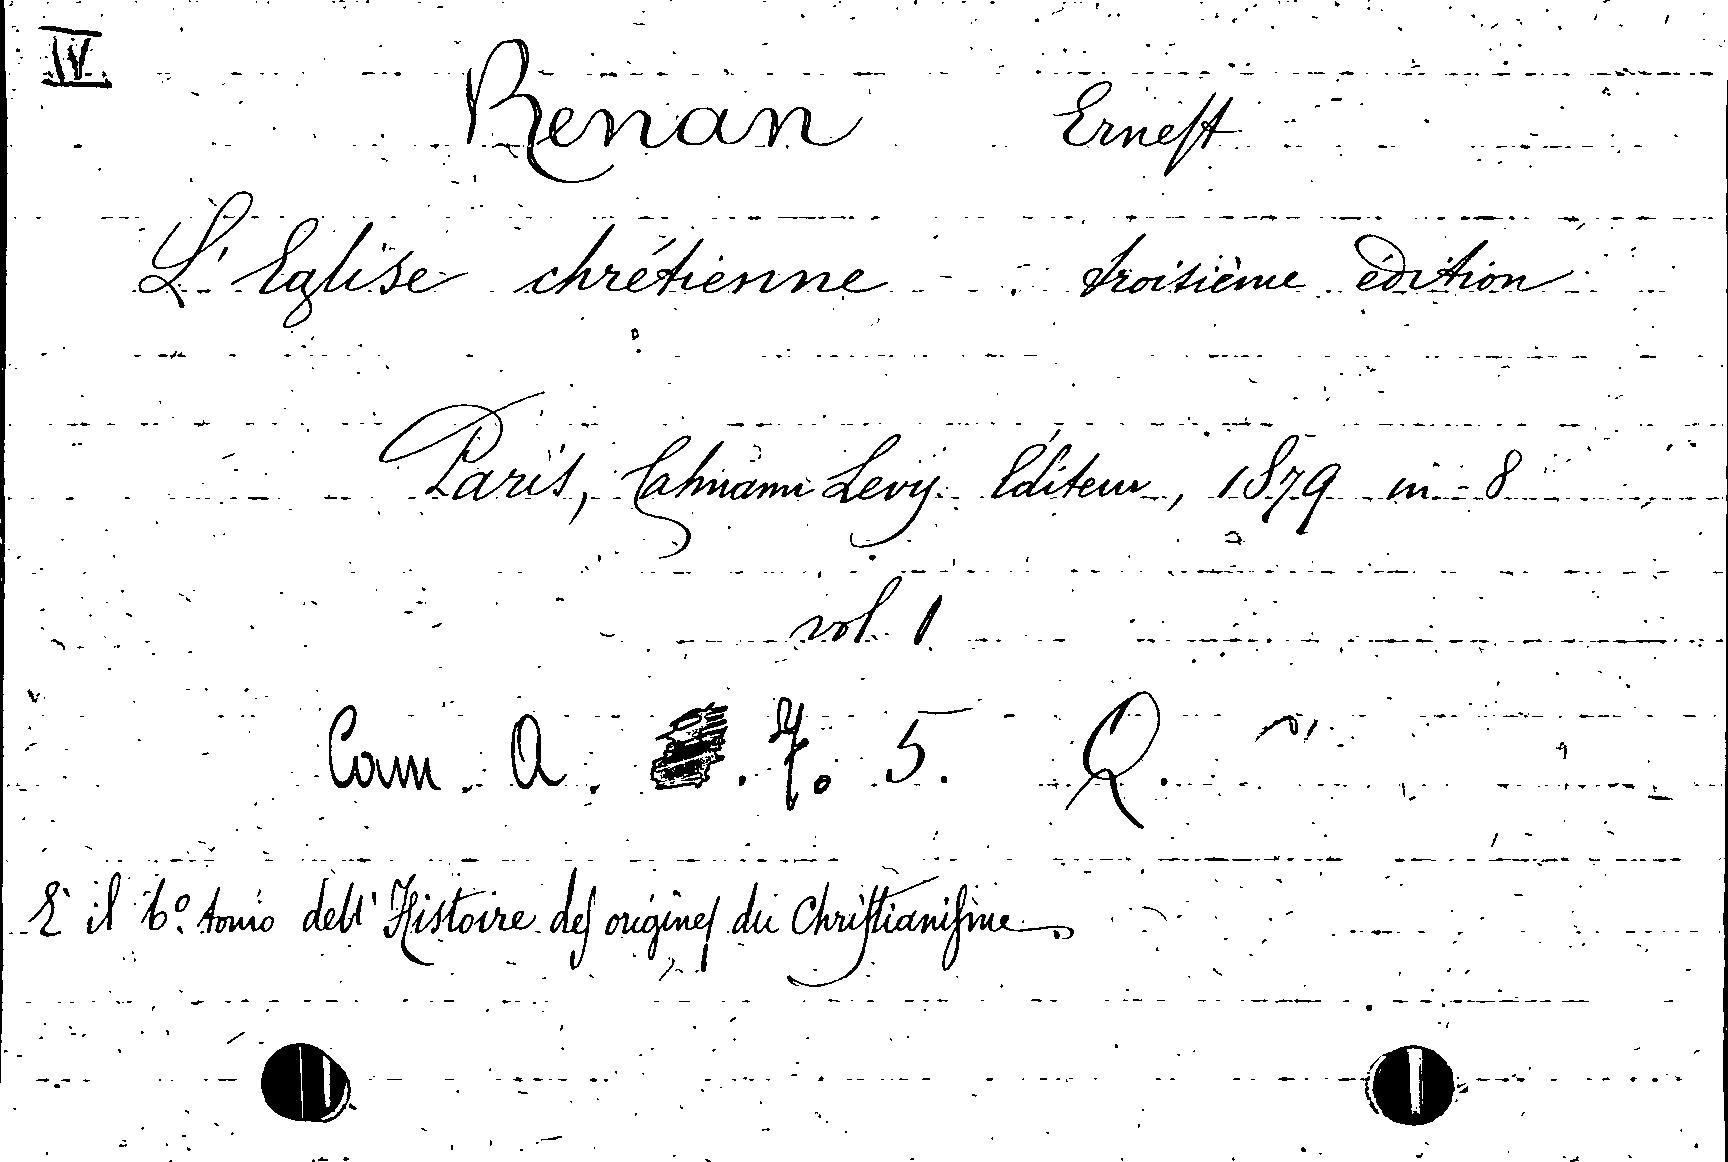 IV
Renan Ernest
L'Eglise chrétienne troisième édition
Paris, Calmann Levy Editeur, 1879 in-8
vol. 1
Cam. A. 7. 5. Q.
E' il 6.º tomo dell'Histoire des origines du Christianisme